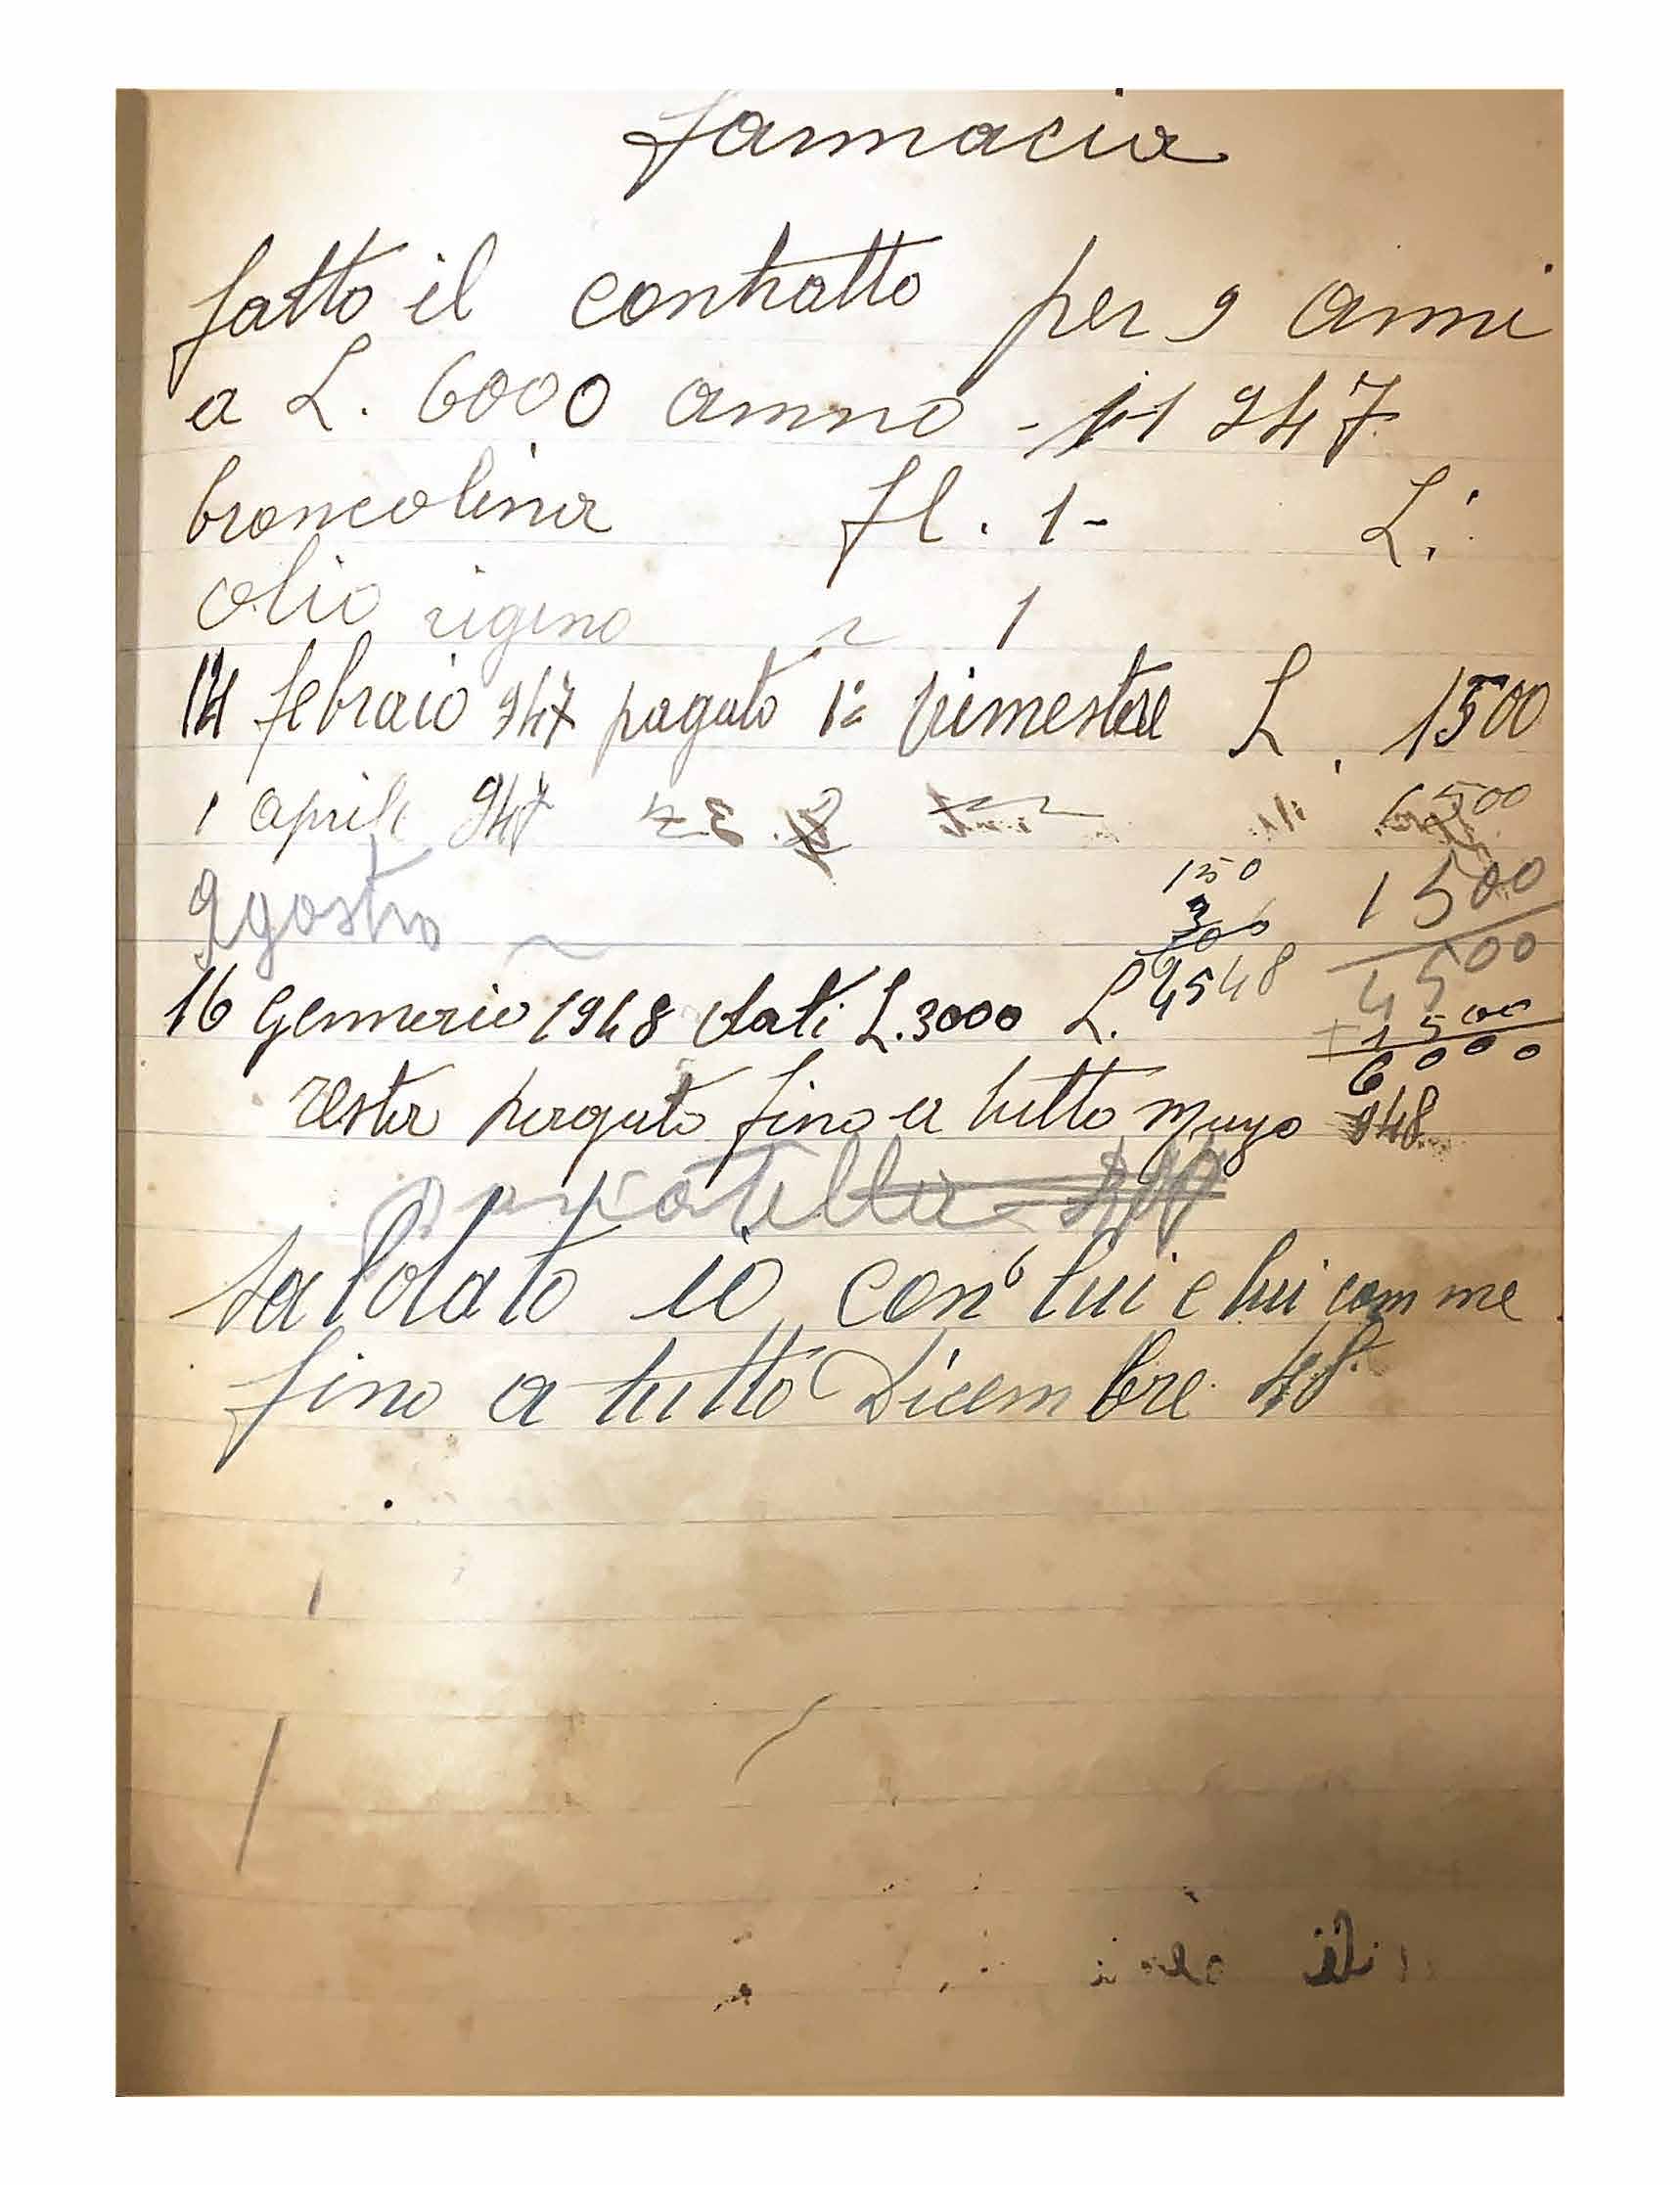 farmacia
fatto il contratto per 9 anni
a L. 6000 anno - 1-1 947
broncolina fl. 1- L.
olio rigeno ~ 1
14 febraio 947 pagato 1° trimestre L. 1500
1 aprile 947 1500
agosto ~ 1500
150
4500
16 Gennario 1948 dati L. 3000 L. 4548
+ 1500
6000
resta pagato fino a tutto marzo 948
saldato io con lui e lui com me
fino a tutto Dicembre 48